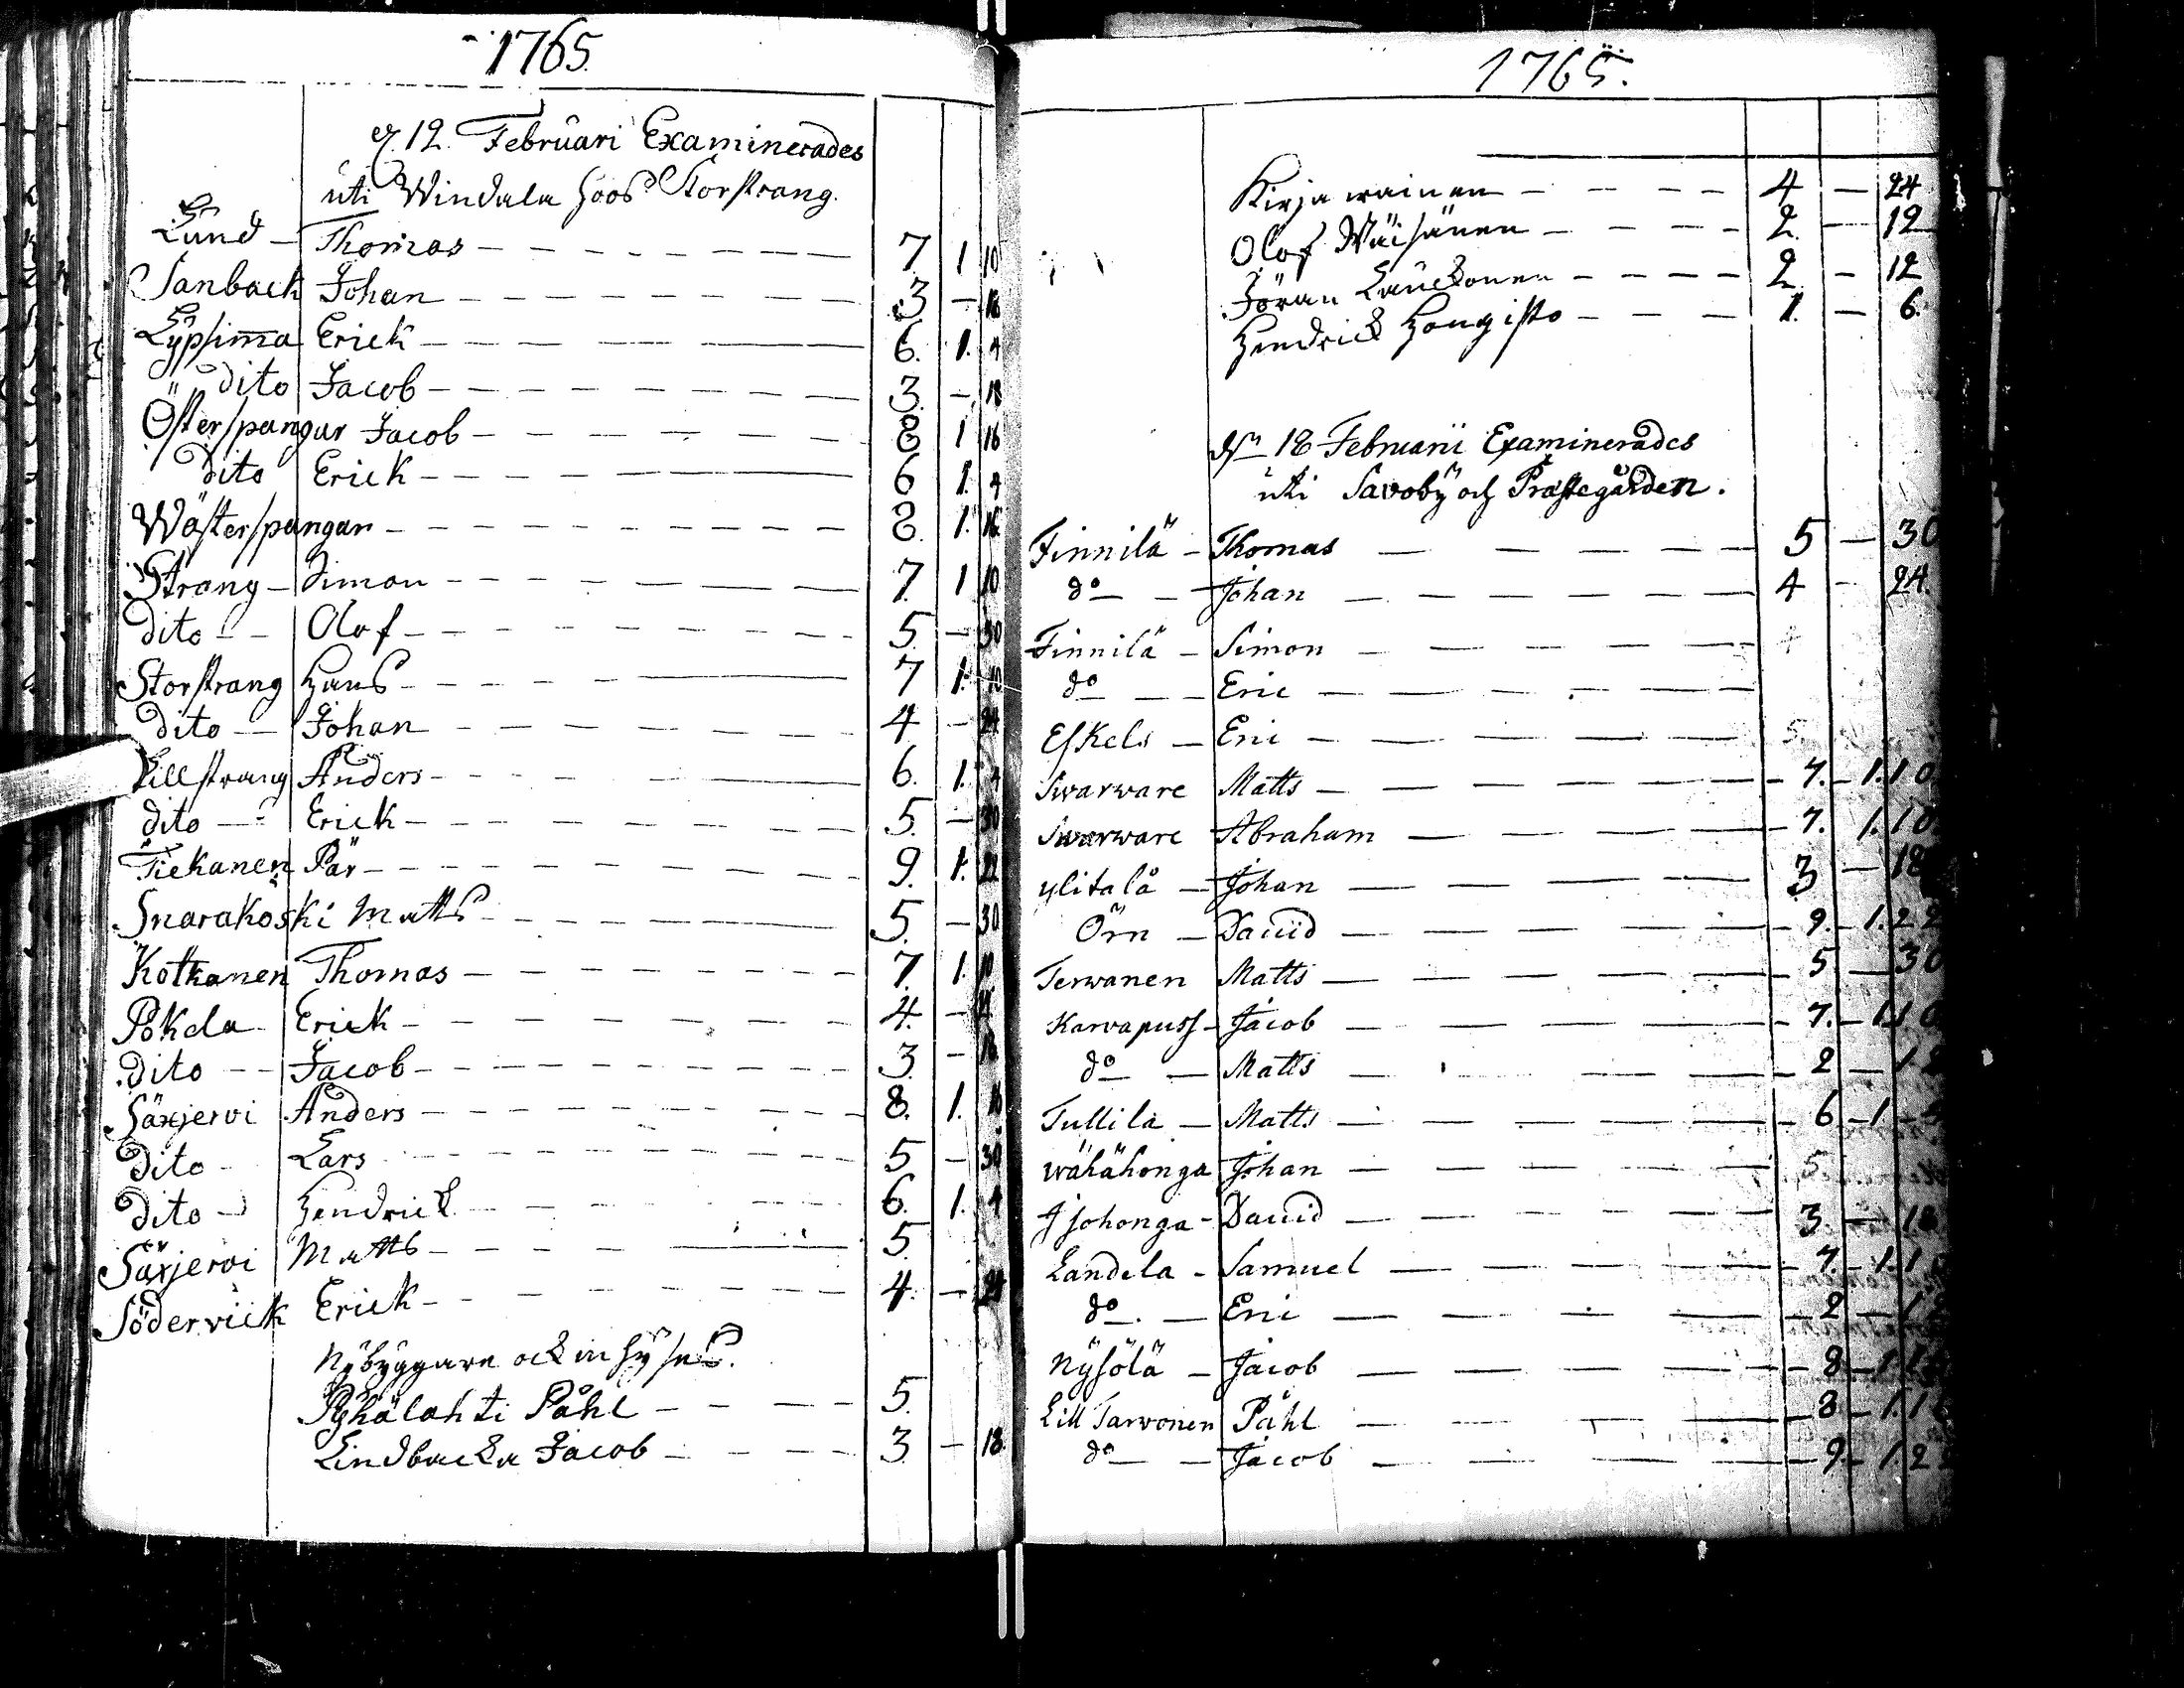 1765.
d. 12. Februari Examinerades
uti Windala hoos Storstrang.
Lund - Thomas - 7 1 10
Sanback Johan - 3 - 18
Lypsima Erick - 6. 1. 4
dito Jacob - 3. - 18
Österspangar Jacob - 8 1 16
dito Erick - 6 1. 4
Wästerspangar - 8. 1. 16
Strang - Simon - 7. 1 10
dito - Olof - 5. - 30
Storstrang Hans - 7 1. 10
dito - Johan - 4 - 24
Lillstrang Anders - 6. 1. 4
dito - Erick - 5. - 30
Tiekanen Pär - 9. 1. 22
Snarakoski Matts - 5. - 30
Kotkanen Thomas - 7. 1. 10
Pokela - Erick - 4. -
dito - Jacob - 3. - 18
Säxjervi Anders - 8. 1. 16
dito - Lars - 5 - 30
dito - Hendrick - 6. 1. 4
Säxjervi Matts - 5.
Södervick Erick - 4. - 24
Nybyggare ock inhyses.
Pyhälahti Påhl - 5.
Lindbacka Jacob - 3 - 18.
1765.
Kirjawainen - 4 - 24
Olof Wäisänen - 2. - 12
Jöran Lauckonen - 2. - 12
Hendrick Hongisto - 1. - 6.
dn 18 Februarii Examinerades
uti Savoby och Prästegården.
Finnilä - Thomas - 5 - 30
do - Johan - 4 - 24.
Finnilä - Simon - 4
do - Eric -
Eskels - Eric - 5.
Swarware Matts - 7. - 1. 10
Swarware Abraham - 7. 1. 10
ylitalå - Johan - 3 - 18
Örn - David - 9. - 1. 22
Terwanen Matts - 5 - 30
Karvapuss - Jacob - 7. - 1. 10
do - Matts - 2 - 12
Tullila - Matts - 6 - 1 - 4
wähähonga Johan - 5.
Isohonga - David - 3. - 18
Landela - Samuel - 7. - 1. 1
do. - Eric - 2 - 12
Nysölä - Jacob - 8 - 1. 1
Lill Tarvonen Påhl - 8 - 1. 1
do - Jacob - 9. - 1. 2